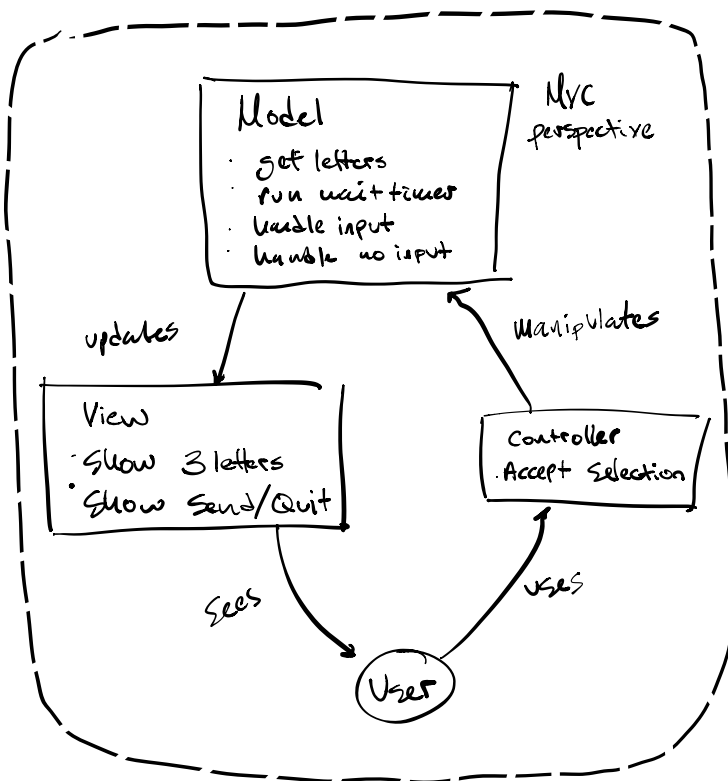 Model
MVC
perspective
· get letters
· run wait timer
· handle input
· handle no input
updates
manipulates
View
· Show 3 letters
· Show Send/Quit
Controller
· Accept Selection
sees
uses
User